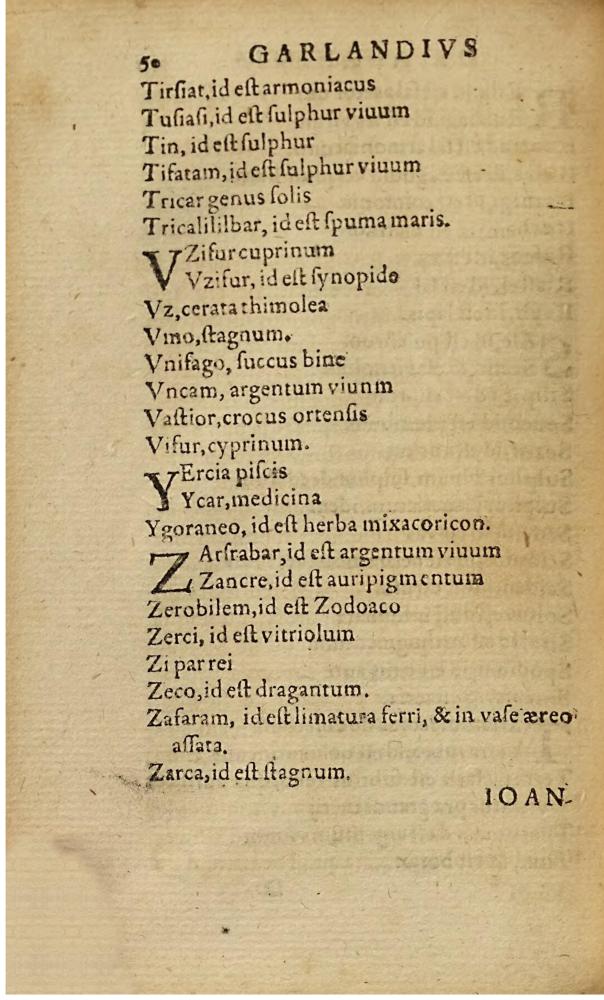 50 GARLANDIVS
Tirſiat, id eſt armoniacus
Tuſiaſi, id eſt ſulphur viuum
Tin, id eſt ſulphur
Tifatam, id eſt ſulphur viuum
Tricar genus ſolis
Tricalililbar, id eſt ſpuma maris.
VZifur cuprinum
Vzifur, id eſt ſynopide
Vz, cerata thimolea
Vmo, ſtagnum.
Vnifago, ſuccus bine
Vncam, argentum viunm
Vaſtior, crocus ortenſis
Viſur, cyprinum.
YErcia piſcis
Ycar, medicina
Ygoraneo, id eſt herba mixacoricon.
ZArſrabar, id eſt argentum viuum
Zancre, id eſt auripigmentum
Zerobilem, id eſt Zodoaco
Zerci, id eſt vitriolum
Zi par rei
Zeco, id eſt dragantum.
Zafaram, id eſt limatura ferri, & in vaſe æreo
aſſata.
Zarca, id eſt ſtagnum.
IOAN-